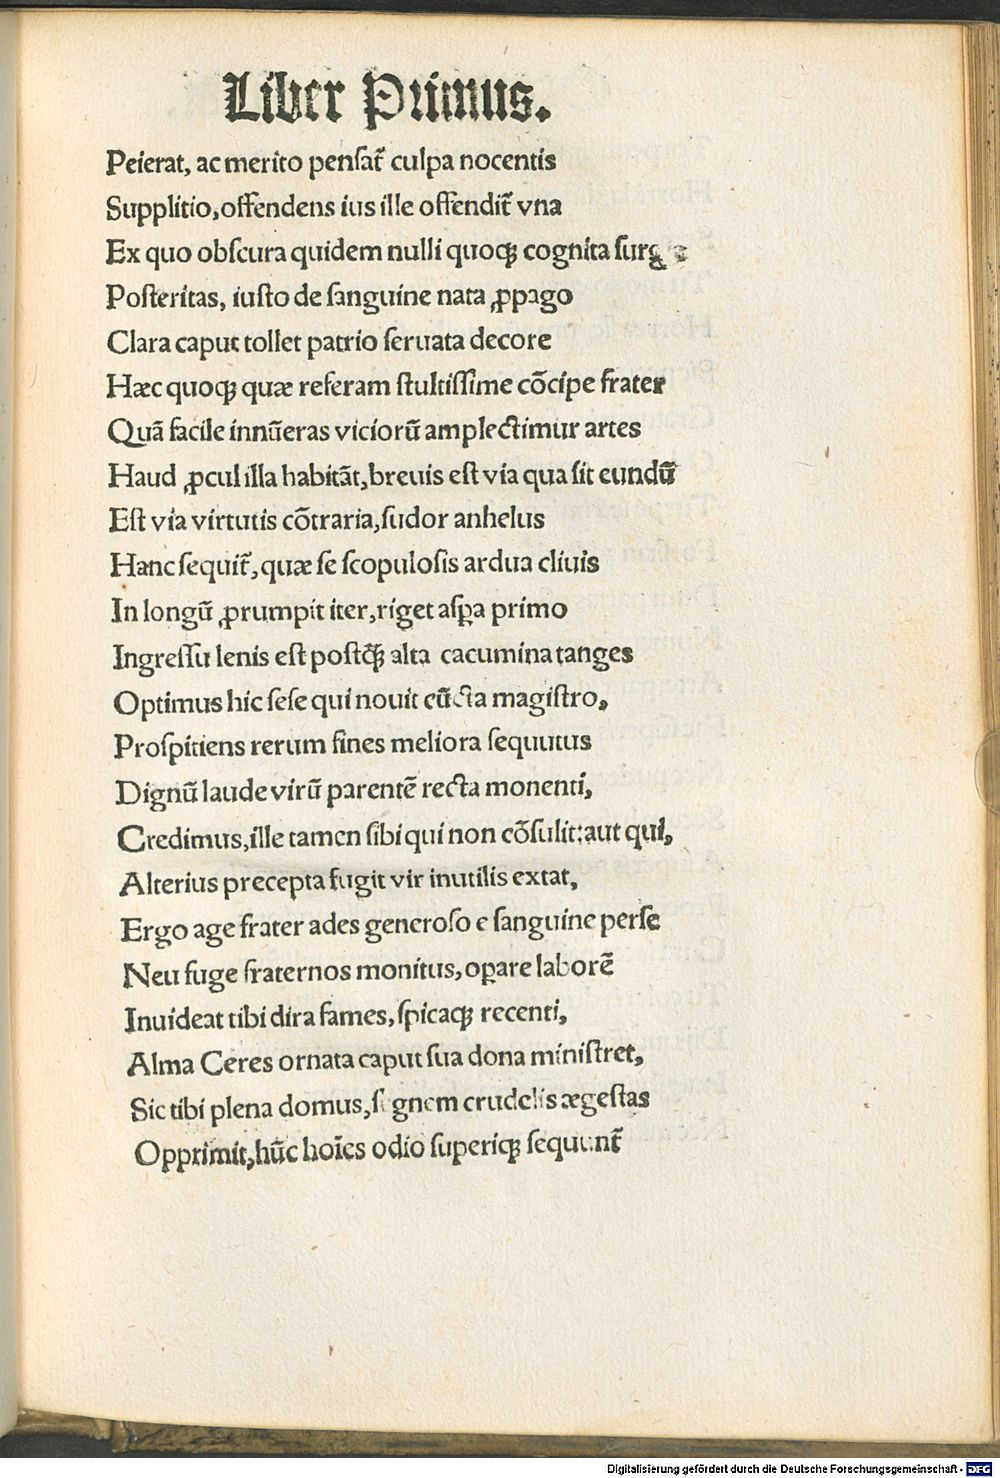 Liber Primus.
Peierat, ac merito penſat᷑ culpa nocentis
Supplitio,offendens ius ille offendit᷑ vna
Ex quo obſcura quidem nulli quoqꝫ cognita
Poſteritas, iuſto de ſanguine nata ꝓpago
Clara caput tollet patrio ſeruata decore
Hæc quoqꝫ quæ referam ſtultiſſime cõcipe frater
Quã facile innũeras viciorũ amplectimur artes
Haud ꝓcul illa habitãt,breuis eſt via qua ſit eundũ
Eſt via virtutis cõtraria,ſudor anhelus
Hanc ſequit᷑, quæ ſe ſcopuloſis ardua cliuis
In longũ ꝓrumpit iter,riget aſꝑa primo
Ingreſſu lenis eſt poſtꝙ̃ alta cacumina tanges
Optimus hic ſeſe qui nouit cũcta magiſtro,
Proſpitiens rerum fines meliora ſequutus
Dignũ laude virũ parentẽ recta monenti,
Credimus,ille tamen ſibi qui non cõſulit:aut qui,
Alterius precepta fugit vir inutilis extat,
Ergo age frater ades generoſo e ſanguine perſe
Neu fuge fraternos monitus, oꝑare laborẽ
Inuideat tibi dira fames, ſpicaqꝫ recenti,
Alma Ceres ornata caput ſua dona miniſtret,
Sic tibi plena domus,ſegnem crudelis ægeſtas
Opprimit,hũc hoĩes odio ſuperiqꝫ ſequunt᷑
Digitalisierung gefördert durch die Deutsche Forschungsgemeinschaft - DFG